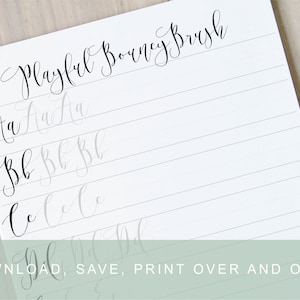 Playful Bouncy Brush
Aa Aa Aa
Bb Bb Bb
Cc Cc Cc
Dd Dd Dd
WNLOAD, SAVE, PRINT OVER AND O